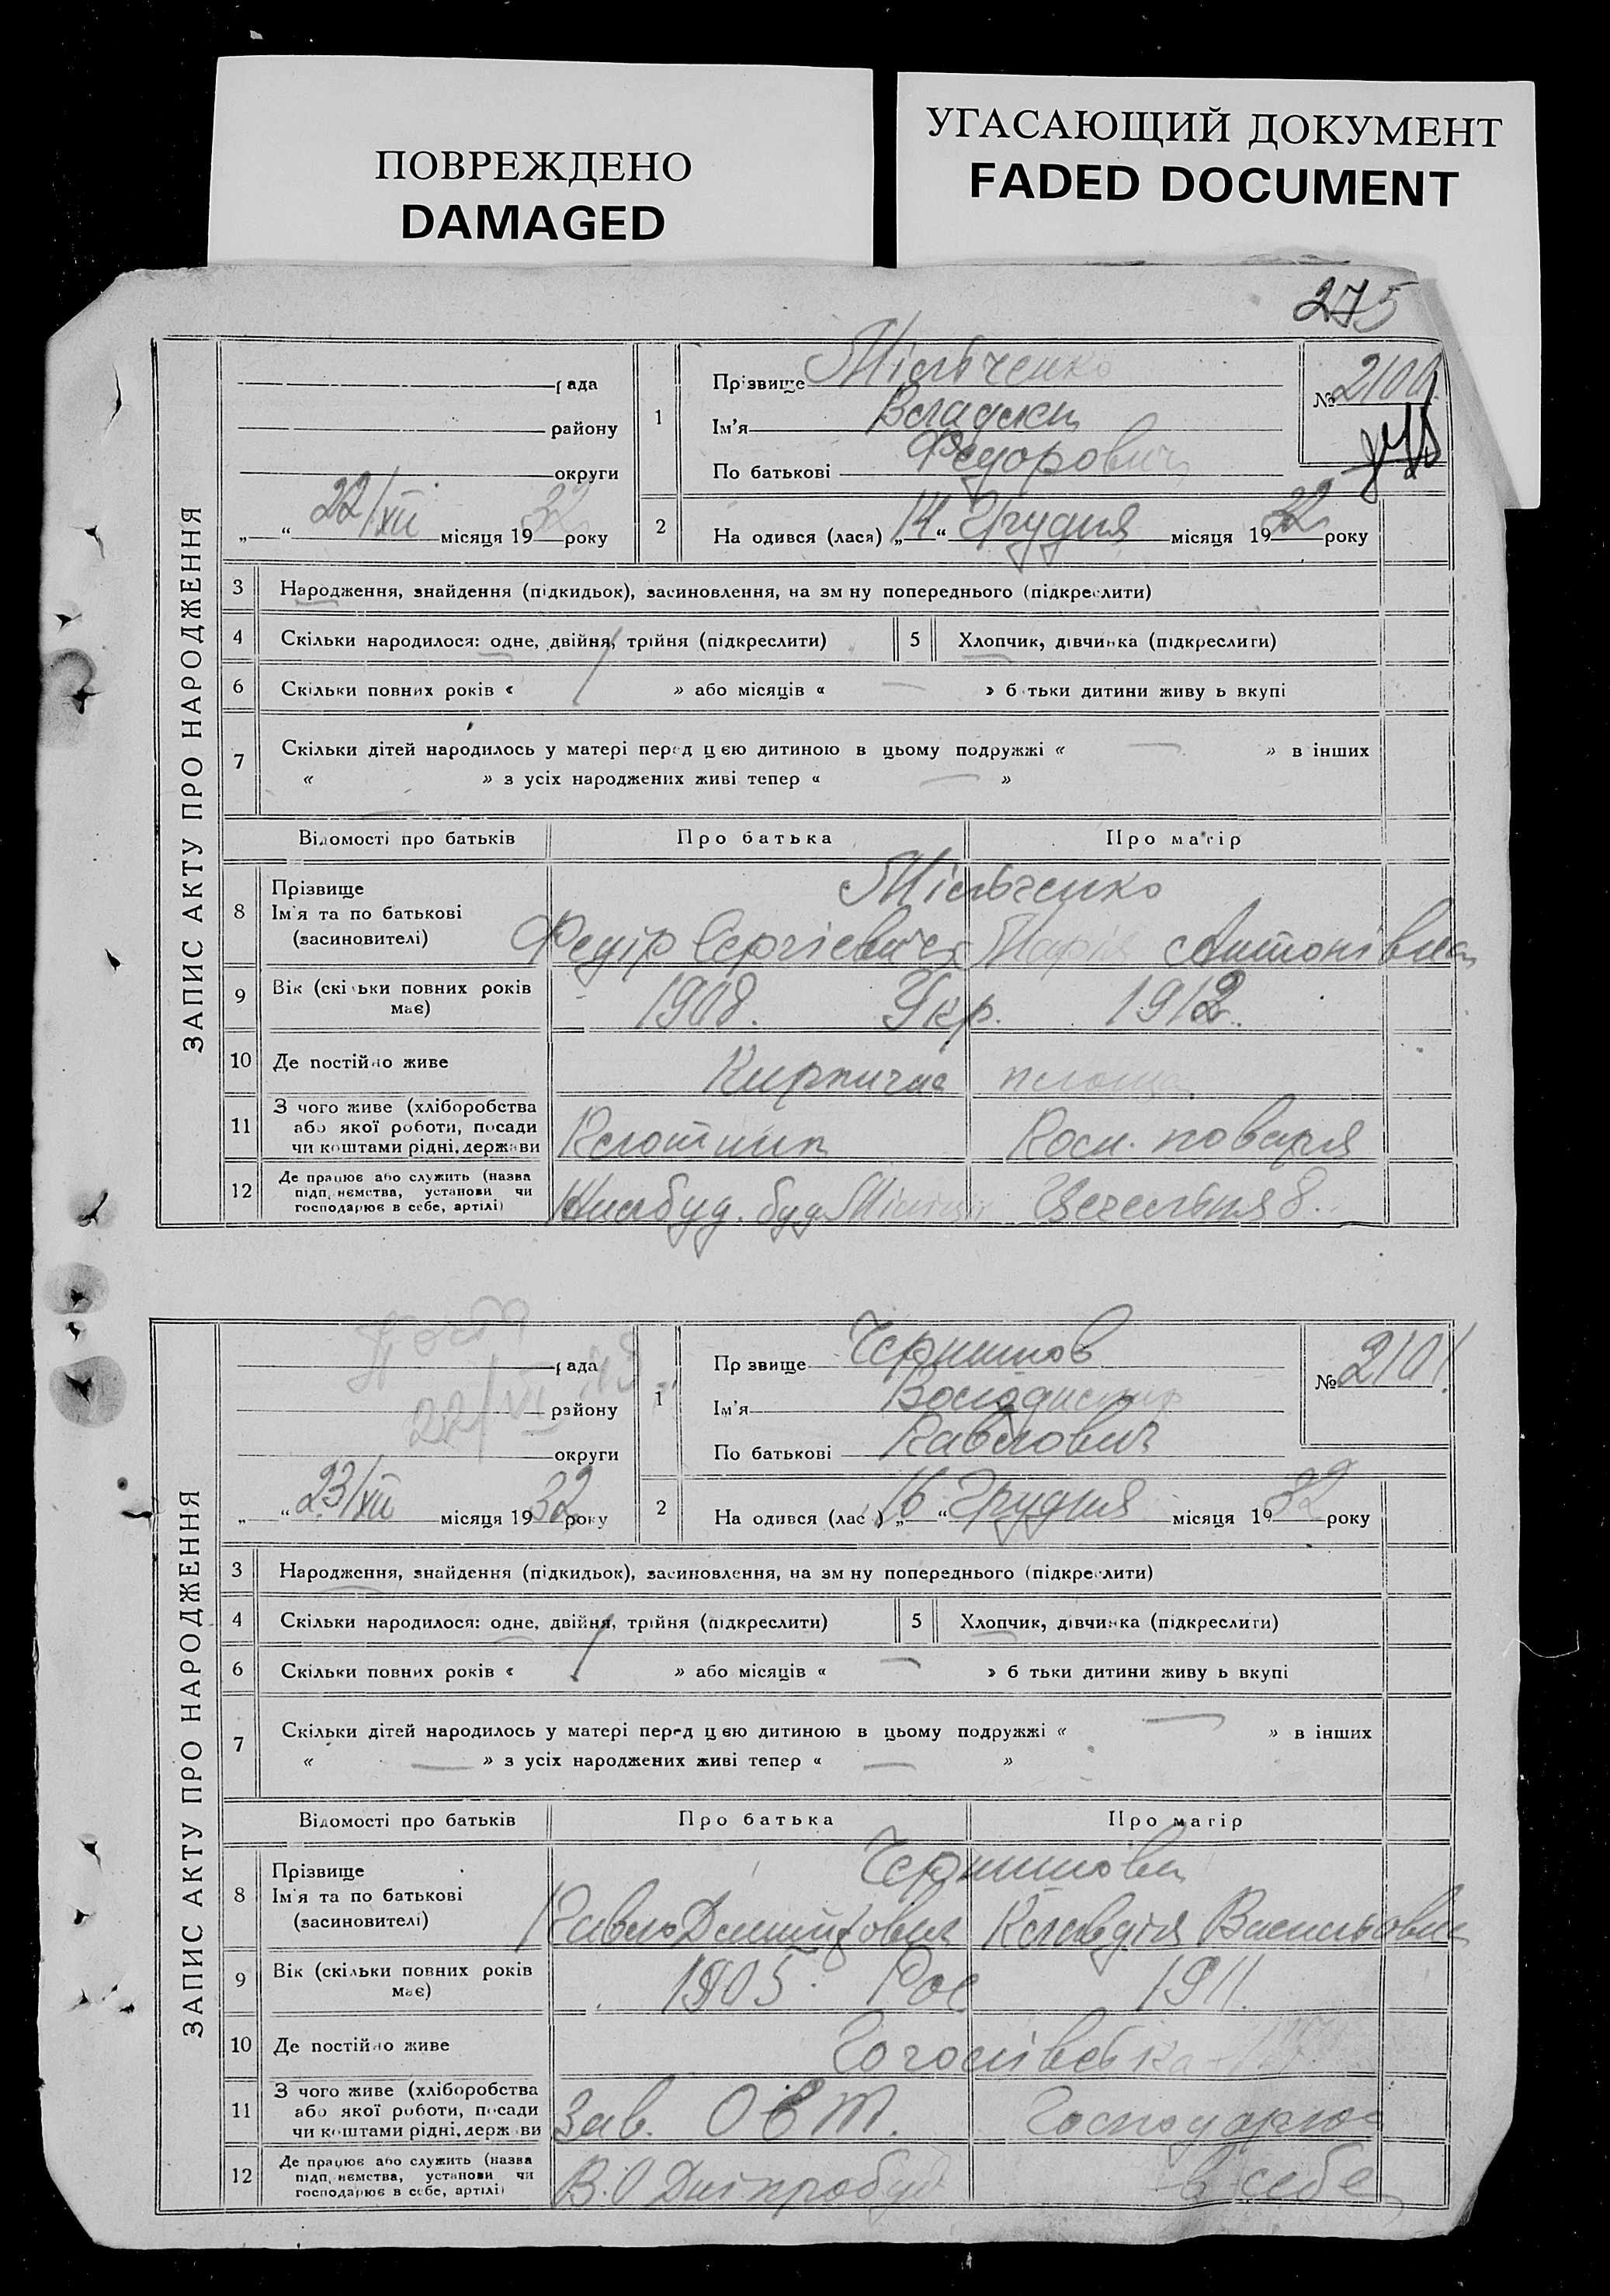 ПОВРЕЖДЕНО
DAMAGED
УГАСАЮЩИЙ ДОКУМЕНТ
FADED DOCUMENT
275
ЗАПИС АКТУ ПРО НАРОДЖЕННЯ
рада
району
округи
„ “ 22/XII місяця 1932 року
1 Прізвище Мільченко
Ім'я
По батькові Федорович
№ 2100
2 На одився (лася) „14“ Грудня місяця 1932 року
3 Народження, знайдення (підкидьок), засиновлення, на зм ну попереднього (підкреслити)
4 Скільки народилося: одне, двійня, трійня (підкреслити) 5 Хлопчик, дівчинка (підкреслити)
6 Скільки повних років « 1 » або місяців « — » б тьки дитини живу ь вкупі
7 Скільки дітей народилось у матері перед цею дитиною в цьому подружжі « — » в інших
« » з усіх народжених живі тепер « — »
Відомості про батьків Про батька Про матір
8 Прізвище Мільченко
Ім'я та по батькові
(засиновителі) Федір Сергієвич Марія Антонівна
9 Вік (скільки повних років має) 1908. Укр. 1912.
10 Де постійно живе Кирпична площа
11 З чого живе (хліборобства
або якої роботи, посади
чи коштами рідні, держави Плотник Пом. повара
12 Де працює або служить (назва
підп, немства, установи чи
господарює в себе, артілі)
ЗАПИС АКТУ ПРО НАРОДЖЕННЯ
рада
22/VI
району
округи
„ “ 23/XII місяця 1932 року
1 Пр звище Чернишов
Ім'я Володимир
По батькові Павлович
№ 2101
2 На одився (лас ) „16“ Грудня місяця 1932 року
3 Народження, знайдення (підкидьок), засиновлення, на зм ну попереднього (підкреслити)
4 Скільки народилося: одне, двійня, трійня (підкреслити) 5 Хлопчик, дівчинка (підкреслити)
6 Скільки повних років « 1 » або місяців « — » б тьки дитини живу ь вкупі
7 Скільки дітей народилось у матері перед цею дитиною в цьому подружжі « — » в інших
« — » з усіх народжених живі тепер « — »
Відомості про батьків Про батька Про матір
8 Прізвище Чернишови
Ім'я та по батькові
(засиновителі) Павло Клавдія Васильовна
9 Вік (скільки повних років має) 1905 Рос 1911.
10 Де постійно живе Гоголівська
11 З чого живе (хліборобства
або якої роботи, посади
чи коштами рідні, держ ви Зав. Господарює
12 Де працює або служить (назва
підп, немства, установи чи
господарює в себе, артілі) В.О Дніпробуд в себе